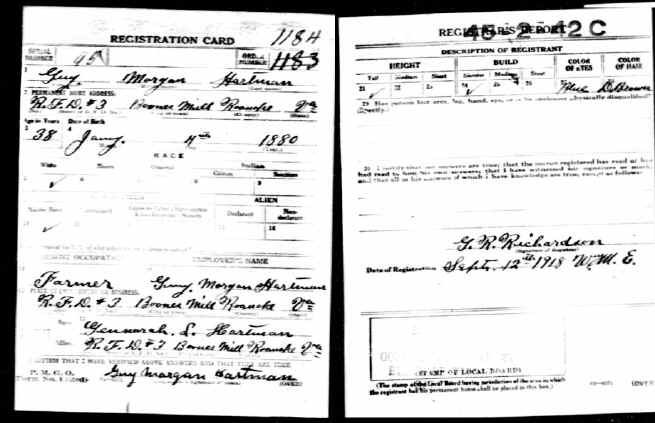 REGISTRATION CARD 1184
SERIAL NUMBER 95 ORDER NUMBER 1183
1 Guy Morgan Hartman
2 PERMANENT HOME ADDRESS:
R.F.D. #3 Boones Mill Roanoke Va
Age in Years Date of Birth
38 Jany. 4th 1880
RACE
White
Citizen
ALIEN
Declared Non-declarant
EMPLOYER'S NAME
Farmer Guy Morgan Hartman
R.F.D. #3 Boones Mill Roanoke Va
Gennarah. L. Hartman
R.F.D. #3 Boones Mill Roanoke Va
P. M. G. O.
Guy Morgan Hartman
REGISTRAR'S REPORT
45-2-42 C
DESCRIPTION OF REGISTRANT
HEIGHT BUILD COLOR OF EYES COLOR OF HAIR
Tall Medium Short Slender Medium Stout
21 22 23 24 25 26 Blue D. Brown
29 Has person lost arm, leg, hand, eye, or is he obviously physically disqualified?
30 I certify that my answers are true; that the person registered has read or has
had read to him his own answers; that I have witnessed his signature or mark,
and that all of his answers of which I have knowledge are true, except as follows:
G. R. Richardson
Date of Registration Sept. 12th 1918 W. M. E.
(STAMP OF LOCAL BOARD)
(The stamp of the Local Board having jurisdiction of the area in which
the registrant has his permanent home shall be placed in this box.)